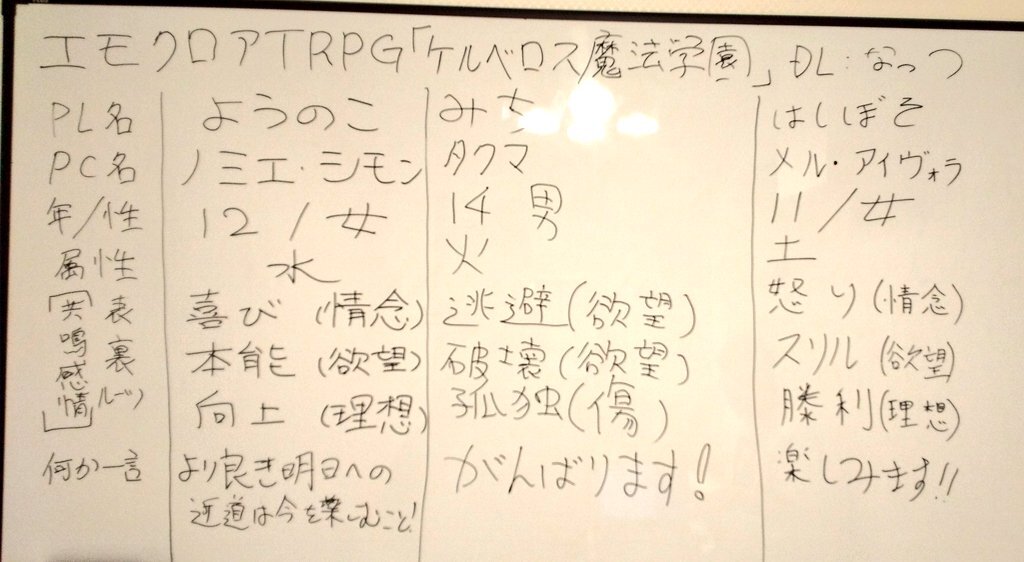 エモクロアTRPG「ケルベロス魔法学園」DL:なっつ
PL名 ようのこ みち はしぼそ
PC名 ノミエ・シモン タクマ メル・アイヴォラ
年/性 12/女 14 男 11/女
属性 水 火 土
[共鳴感情] 表 喜び(情念) 逃避(欲望) 怒り(情念)
裏 本能(欲望) 破壊(欲望) スリル(欲望)
ルーツ 向上(理想) 孤独(傷) 勝利(理想)
何か一言 より良き明日への がんばります! 楽しみます!!
近道は今を楽しむこと!